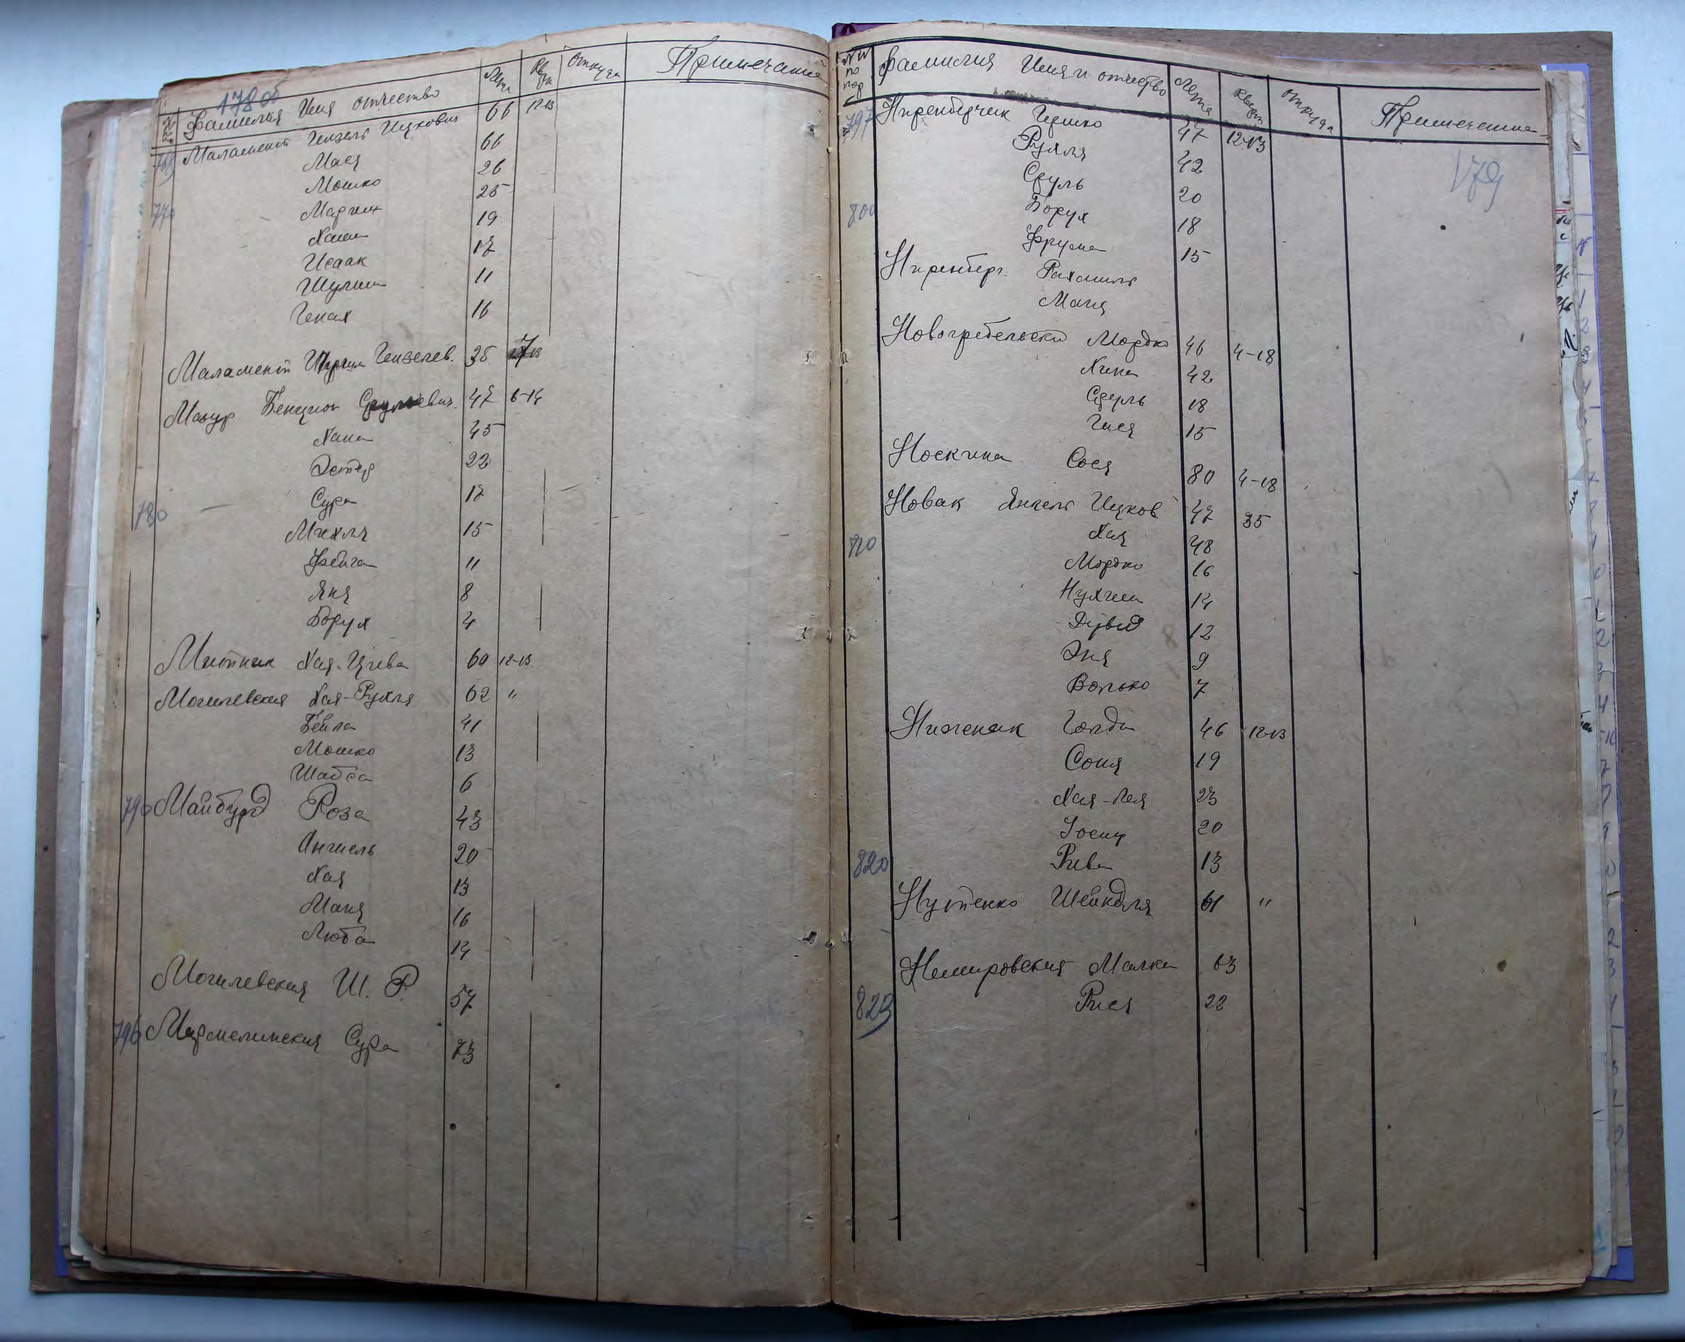 178 об
Фамилия Имя отчество Лета Квар. Откуда Примечание
Маламент Гензель Ицкович 66 12-13
Мася 66
Мошко 26
770 Маргим 25
Хана 19
Исаак 17
Шулим 11
Генах 16
Маламент Гензелев. 35
Мазур Бенцион 47 6-14
Хана 45
Эстер 22
780 Сура 17
Михля 15
Фейга 11
Яня 8
Борух 4
Митник Хая-Цива 60 12-13
Могилевская Хая-Рухля 62 "
Бейла 41
Мошко 13
Шабса 6
790 Майбурд Роза 43
Ангиель 20
Хая 13
Маня 16
Люба 14
Могилевская Ш. Р. 57
796 Сура 73
№№ по пор Фамилия Имя и отчество Лета Кварт Откуда Примечание
179
797 Гершко 47 12-13
Рухля 42
Сруль 20
800 Борух 18
Фрума 15
Ниренберг Рахмиль
Маня
Новогребельский Мордко 46 4-18
Хина 42
Сруль 18
Гися 15
Носкина Сося 80 4-18
Новак Янкель Ицков 47 35
810 Хая 48
Мордко 16
Нухим 14
Дувид 12
Эня 9
Волько 7
Ниженик Голда 46 12-13
Соня 19
Хая-Лея 23
Иосиф 20
820 Рива 13
Нутенко Шейндля 61 "
Немировская Малка 63
823 Рися 22